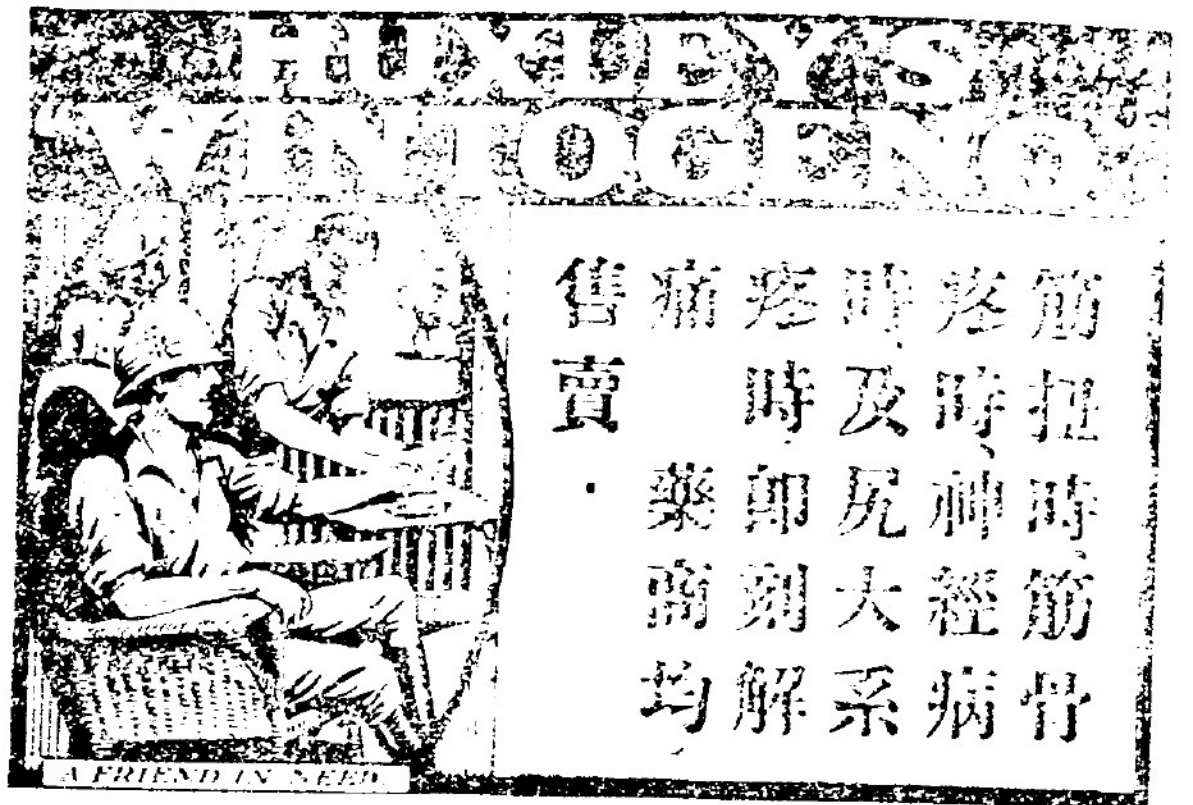 HUXLEY'S
WINTOGENO
筋扭時筋骨
疼時神經病
時及尻大系
疼時即刻解
痛 藥商均
售賣.
A FRIEND IN NEED.